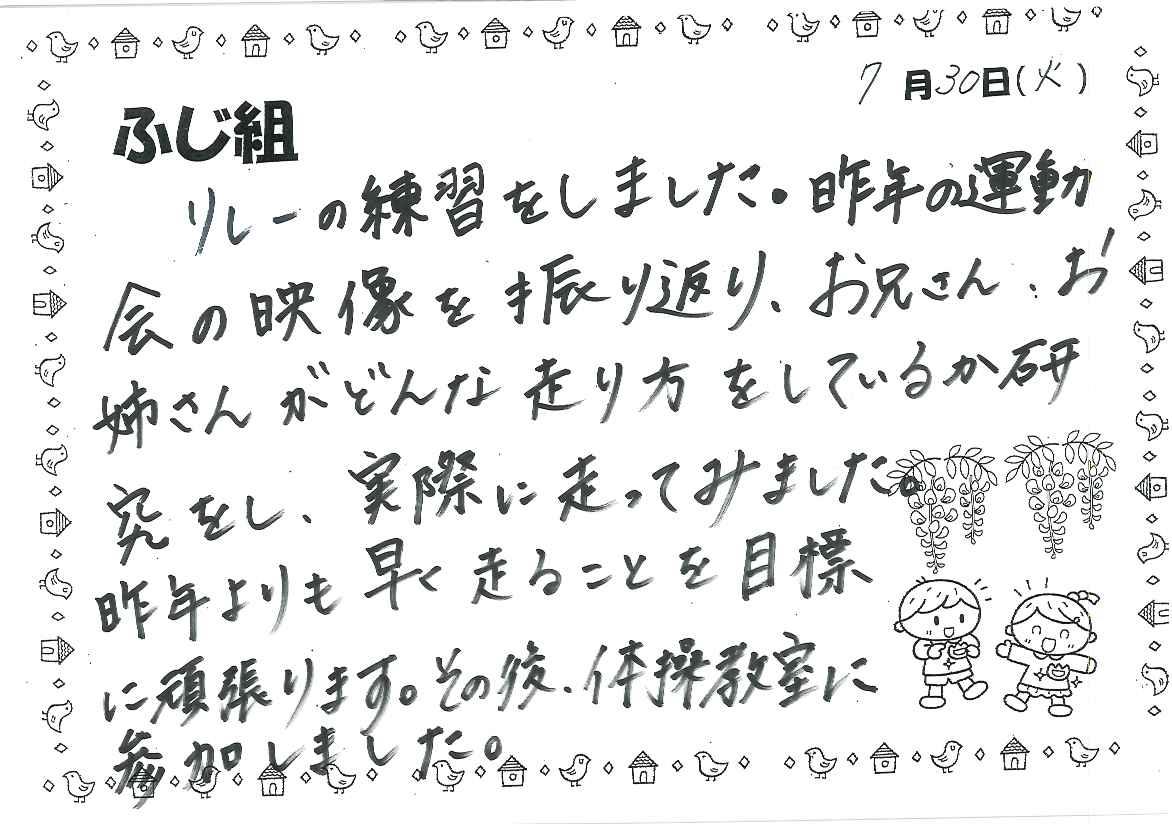 7月30日(火)
ふじ組
リレーの練習をしました。昨年の運動
会の映像を振り返り、お兄さん、お
姉さんがどんな走り方をしているか研
究をし、実際に走ってみました。
昨年よりも早く走ることを目標
に頑張ります。その後、体操教室に
参加しました。